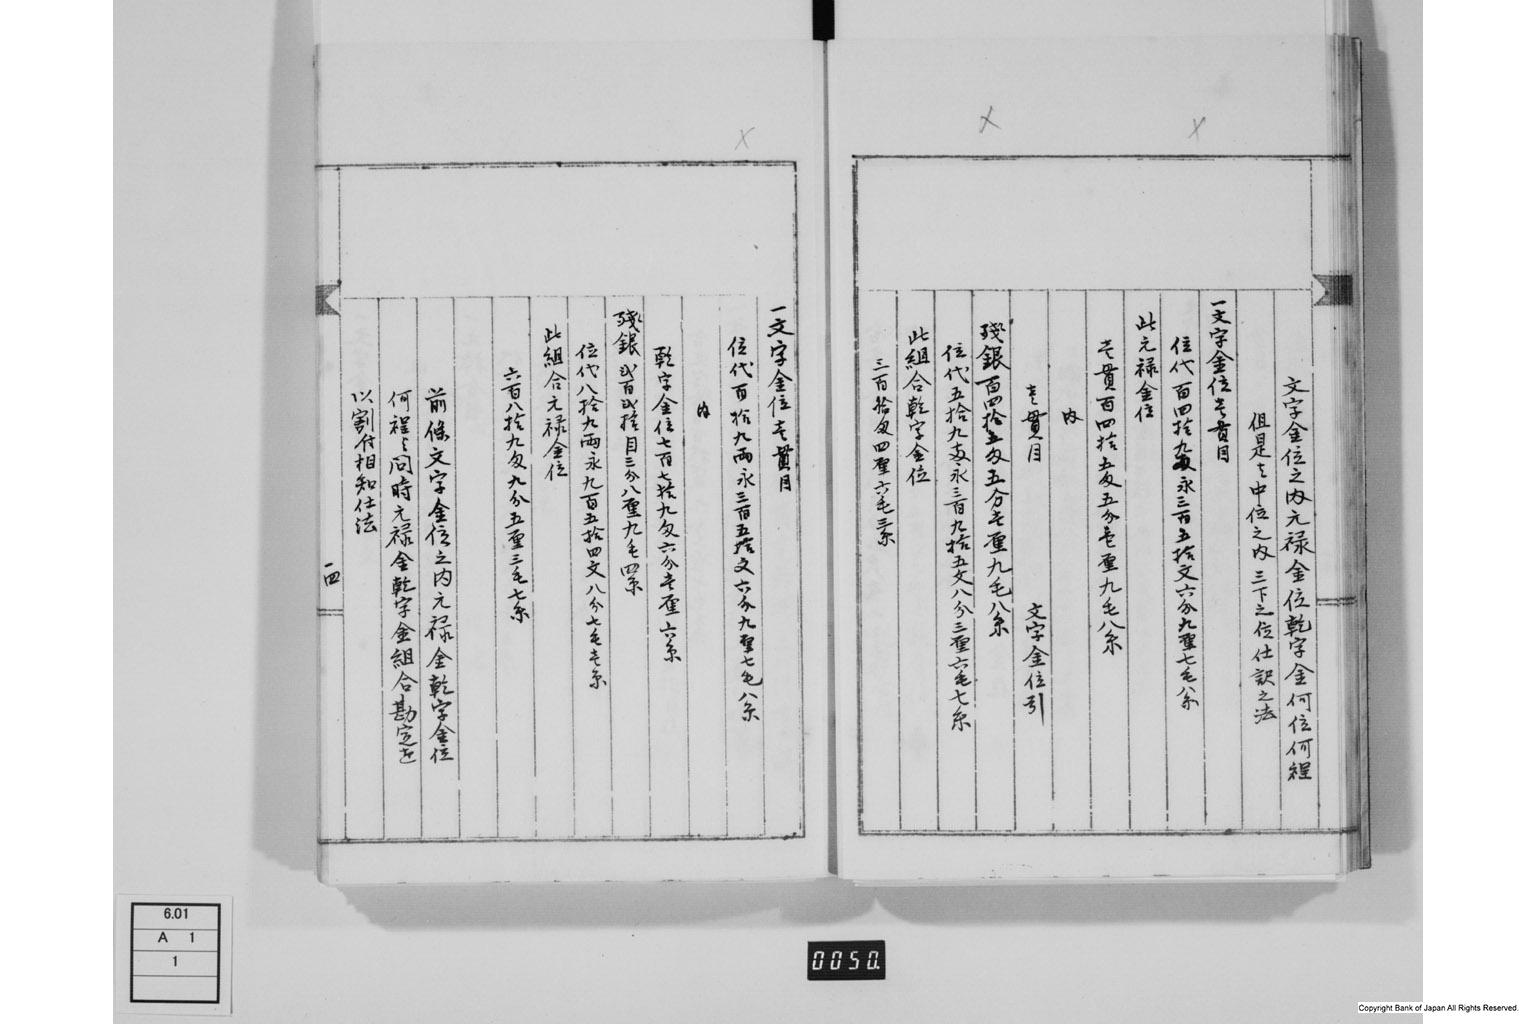 文字金位之内元禄金位乾字金何位何程
但是者中位之内三下之位仕訳之法
一文字金位壱貫目
位代百四拾九両永三百五拾文六分九厘七毛八糸
此元禄金位
壱貫百四拾五匁五分壱厘九毛八糸
内
壱貫目 文字金位引
残銀百四拾五匁五分壱厘九毛八糸
位代五拾九両永三百九拾五文八分三厘六毛七糸
此組合乾字金位
三百拾匁四厘六毛三糸
一文字金位壱貫目
位代百拾九両永三百五拾文六分九厘七毛八糸
内
乾字金位七百七拾九匁六分壱厘六糸
残銀弐百弐拾目三分八厘九毛四糸
位代八拾九両永九百五拾四文八分七毛壱糸
此組合元禄金位
六百八拾九匁九分五厘三毛七糸
前條文字金位之内元禄金乾字金位
何程与問時元禄金乾字金組合勘定を
以割付相知仕法
一四
6.01
A 1
1
0050.
Copyright Bank of Japan All Rights Reserved.